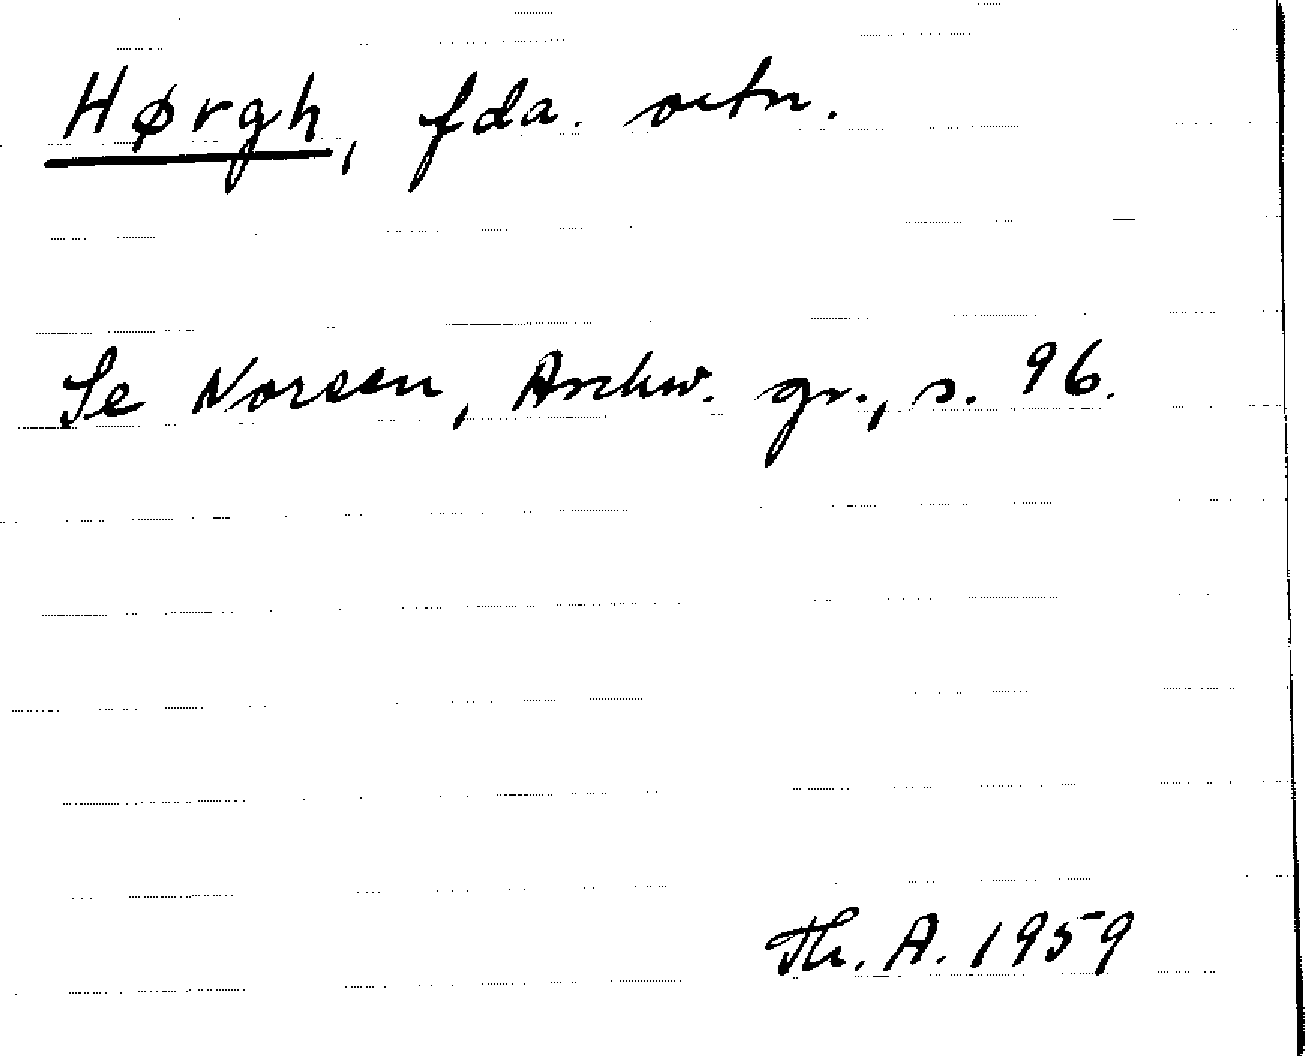 Hørgh, fda. ortn.
Se Noreen, Archiv. gr., s. 96.
Th. A. 1959